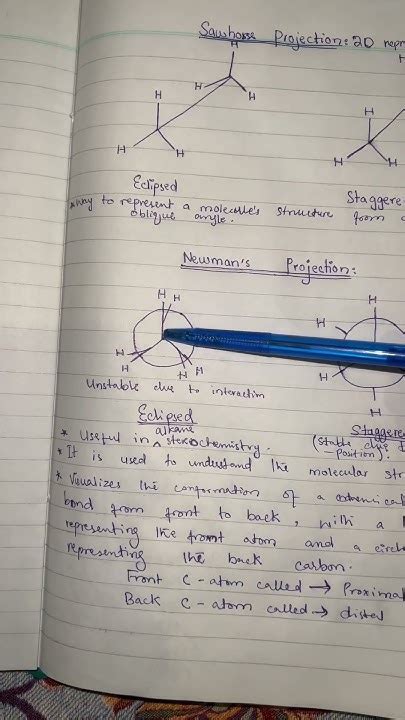 Sawhorse Projection: 2D repr
H
H
H
H
H
H
H
H
H
H
H
Eclipsed
Staggere
* way to represent a molecule's structure from a
oblique angle.
Newman's Projection:
H H
H
H
H
H
H
H
H
H
H
Unstable due to interaction
Eclipsed
Staggere
* Useful in alkane stereochemistry.
(Stable due t
-position).
* It is used to understand the molecular str
* Visualizes the conformation of a
bond from front to back, with a
representing the front atom and a circle
representing the back carbon.
Front C-atom called → Proximal
Back C-atom called → distal